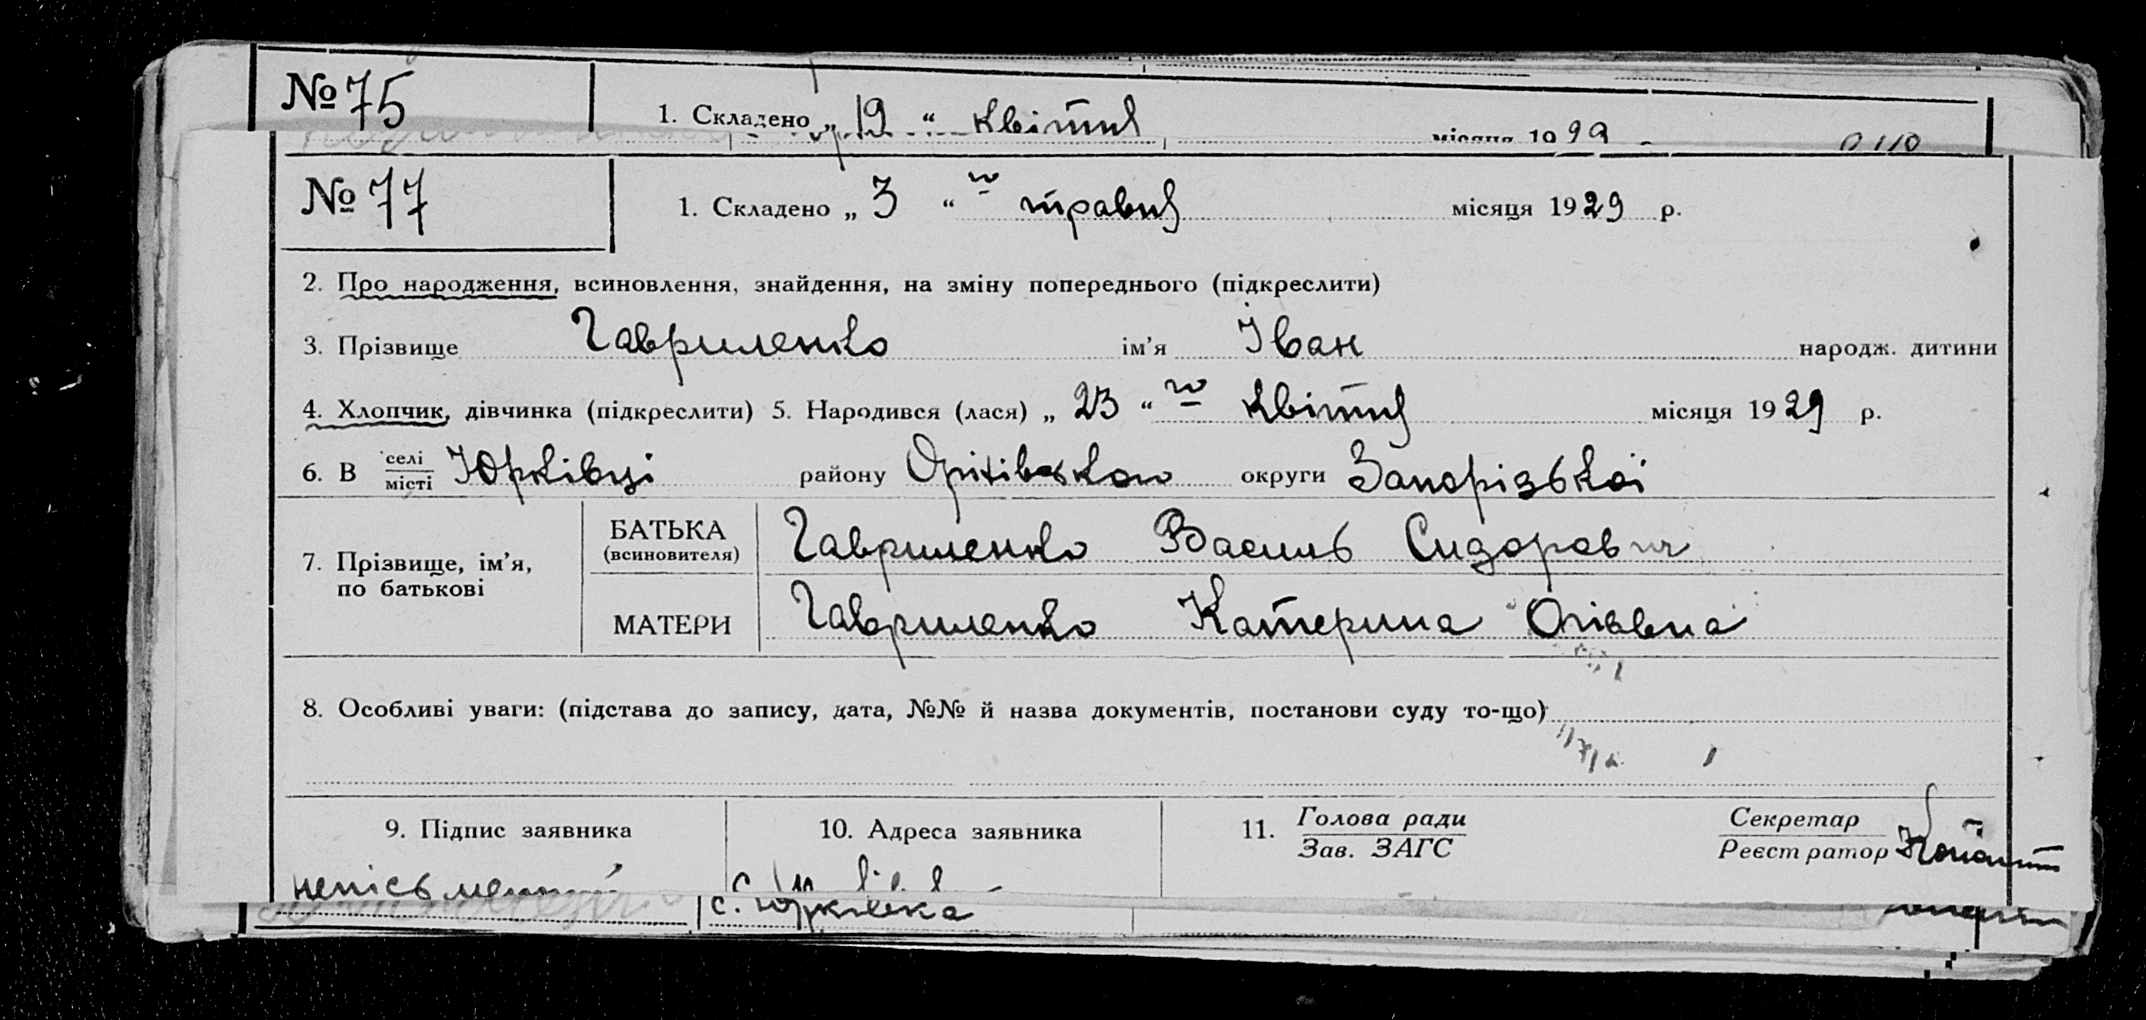 № 75
1. Складено „ 19 “ квітня
місяця 19
№ 77
1. Складено „ 3 “ го травня місяця 1929 р.
2. Про народження, всиновлення, знайдення, на зміну попереднього (підкреслити)
3. Прізвище Гавриленко ім’я Іван народж. дитини
4. Хлопчик, дівчинка (підкреслити) 5. Народився (лася) „ 23 “ го квітня місяця 1929 р.
6. В селі/місті Юрківці району Оріхівського округи Запорізької
7. Прізвище, ім’я, по батькові
БАТЬКА (всиновителя) Гавриленко Василь Сидорович
МАТЕРИ Гавриленко Катерина
8. Особливі уваги: (підстава до запису, дата, №№ й назва документів, постанови суду то-що)
9. Підпис заявника 10. Адреса заявника 11. Голова ради/Зав. ЗАГС Секретар/Реєстратор
непісьменний с.
с. Юрківка